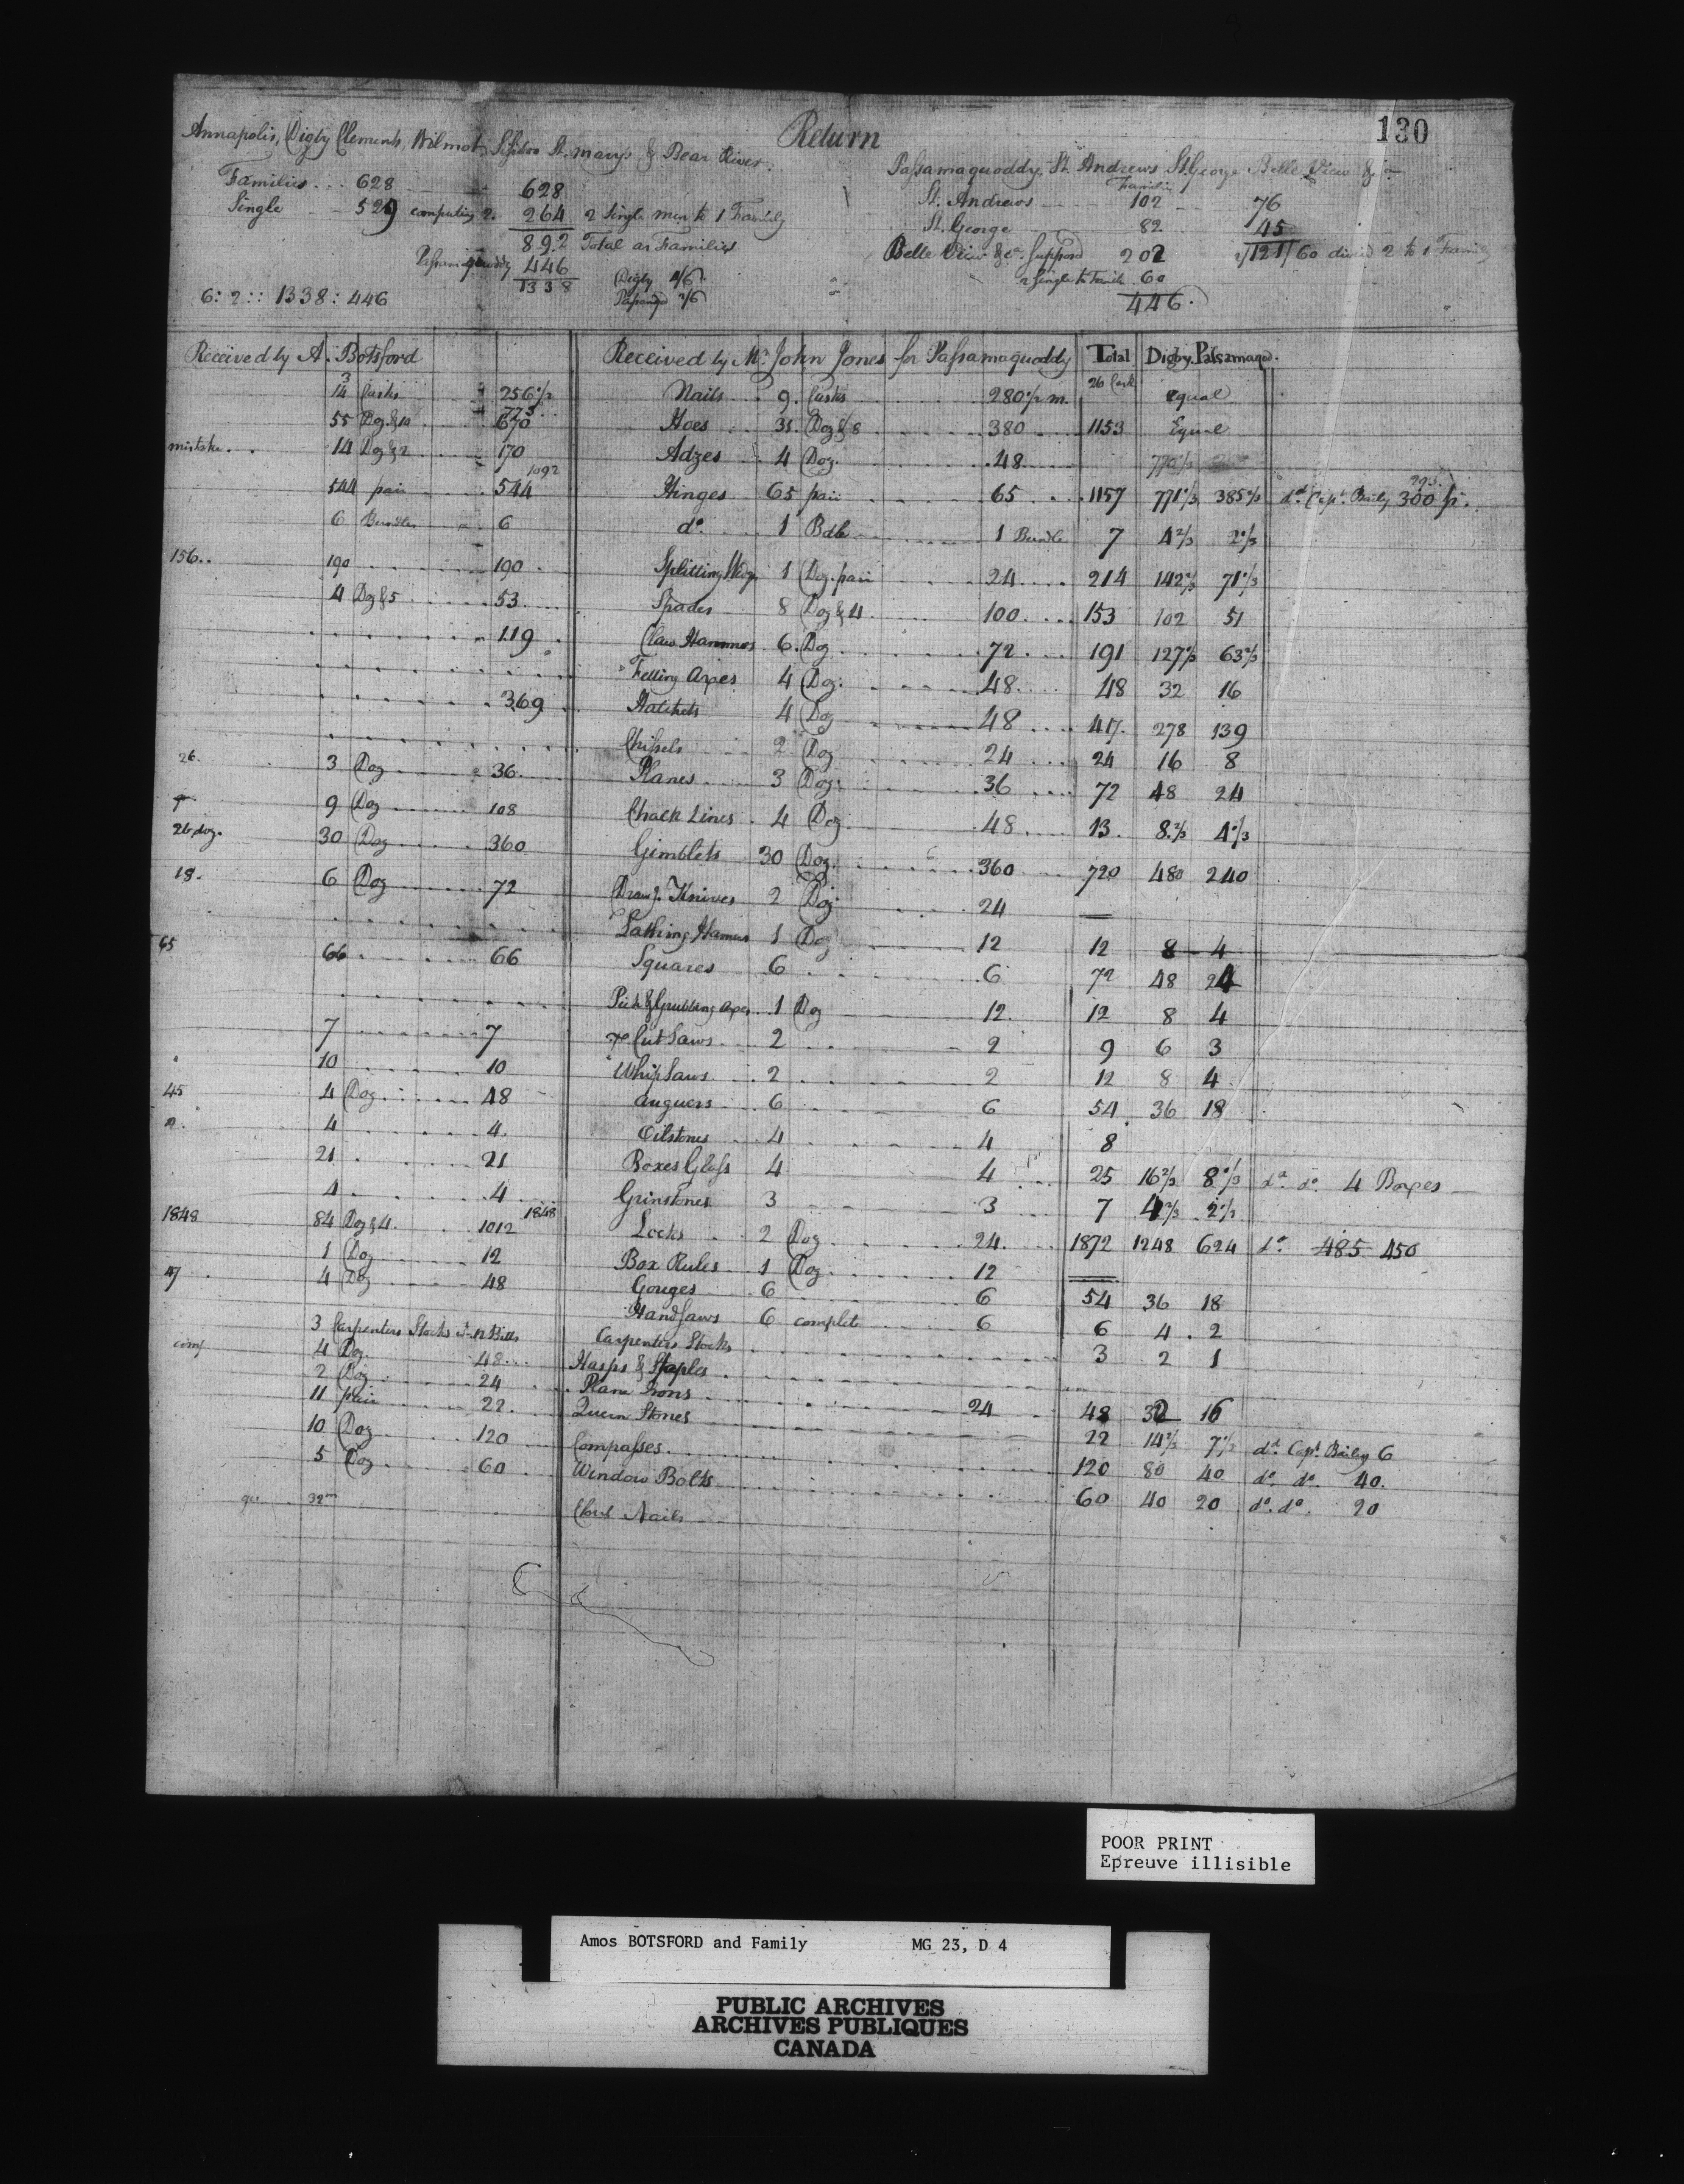 130
Return
Annapolis, Digby Clements, Wilmot, St. marys & Bear River.
Families . . . 628 628
Single 529 computing 2. 264 2 Single men to 1 Family
892 Total as Families
Passamaquoddy 446
1338
Digby
6 : 2 :: 1338 : 446
Passamaquoddy, St. Andrews St. George Belle View &c
Families
St. Andrews 102 76
St. George 82 45
Belle View &c. Suppose 202 121 / 60 divid 2 to 1 Family
2 Single to Famile 60
446.
Received by A. Botsford Received by Mr. John Jones for Passamaquoddy Total Digby. Passamaquo.
3
14 Casks 256 1/2 Nails 9. Casks 280 1/2 m. 26 Cask equal
773
55 Doz. & 10 670 Hoes 31. Doz & 8 380 1153 Equal
mistake. . 14 Doz & 2 170 Adzes 4 Doz. 48
1092
544 pair 544 Hinges 65 pair 65 1157 771 1/3 385 2/3 dd. Capt. Baily 300 p.
6 Bundles 6 do. 1 Bdle 1 Bundle 7 4 2/3 2 1/3
156. . 190 190 Splitting Wedges 1 Doz. pair 24 214 142 2/3 71 1/3
4 Doz & 5 53 Spades 8 Doz & 4 100 153 102 51
119 Claw Hammers 6. Doz 72 191 127 1/3 63 2/3
Felling Axes 4 Doz. 48 48 32 16
369 Hatchets 4 Doz 48 417. 278 139
Chissels 2 Doz 24 24 16 8
26. 3 Doz 36 Planes 3 Doz. 36 72 48 24
9 Doz 108 Chack Lines 4 Doz 48 13. 8 2/3 4 1/3
26 doz. 30 Doz 360 Gimblets 30 Doz. 360 720 480 240
18. 6 Doz 72 Drawg. Knives 2 Doz 24 —
Lathing Hamers 1 Doz 12 12 8 4
65 66 66 Squares 6 6 72 48 24
Pick & Grubbing Axes 1 Doz 12. 12 8 4
7 7 x Cut Saws 2 2 9 6 3
10 10 Whip Saws 2 2 12 8 4
45 4 Doz 48 augurs 6 6 54 36 18
2. 4 4. Oilstones 4 4 8
21 21 Boxes Glass 4 4 25 16 2/3 8 1/3 dd. do. 4 Boxes
4 4 Grinstones 3 3 7 4 2/3 2 1/3
1848
1848 84 Doz & 4. 1012 Locks 2 Doz 24. 1872 1248 624 do 485 450
1 Doz 12 Box Rules 1 Doz 12
47 4 Doz 48 Gouges 6 6 54 36 18
Handsaws 6 complet 6 6 4 2
3 Carpenters Stocks & 12 Bitts Carpenters Stocks 3 2 1
4 Doz. 48 Hasps & Staples
2 Doz 24 Plane Irons 24 48 32 16
11 pair 22. Quern Stones 22 14 2/3 7 1/3 dd. Capt. Baily 6
10 Doz 120 Compasses 120 80 40 do. do. 40.
5 Doz 60 Window Bolts 60 40 20 do. do. 20
32m Clout Nails
POOR PRINT
Epreuve illisible
Amos BOTSFORD and Family MG 23, D 4
PUBLIC ARCHIVES
ARCHIVES PUBLIQUES
CANADA